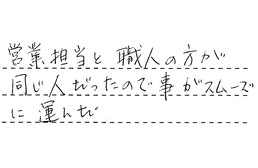 営業担当と職人の方が
同じ人だったので事がスムーズ
に運んだ